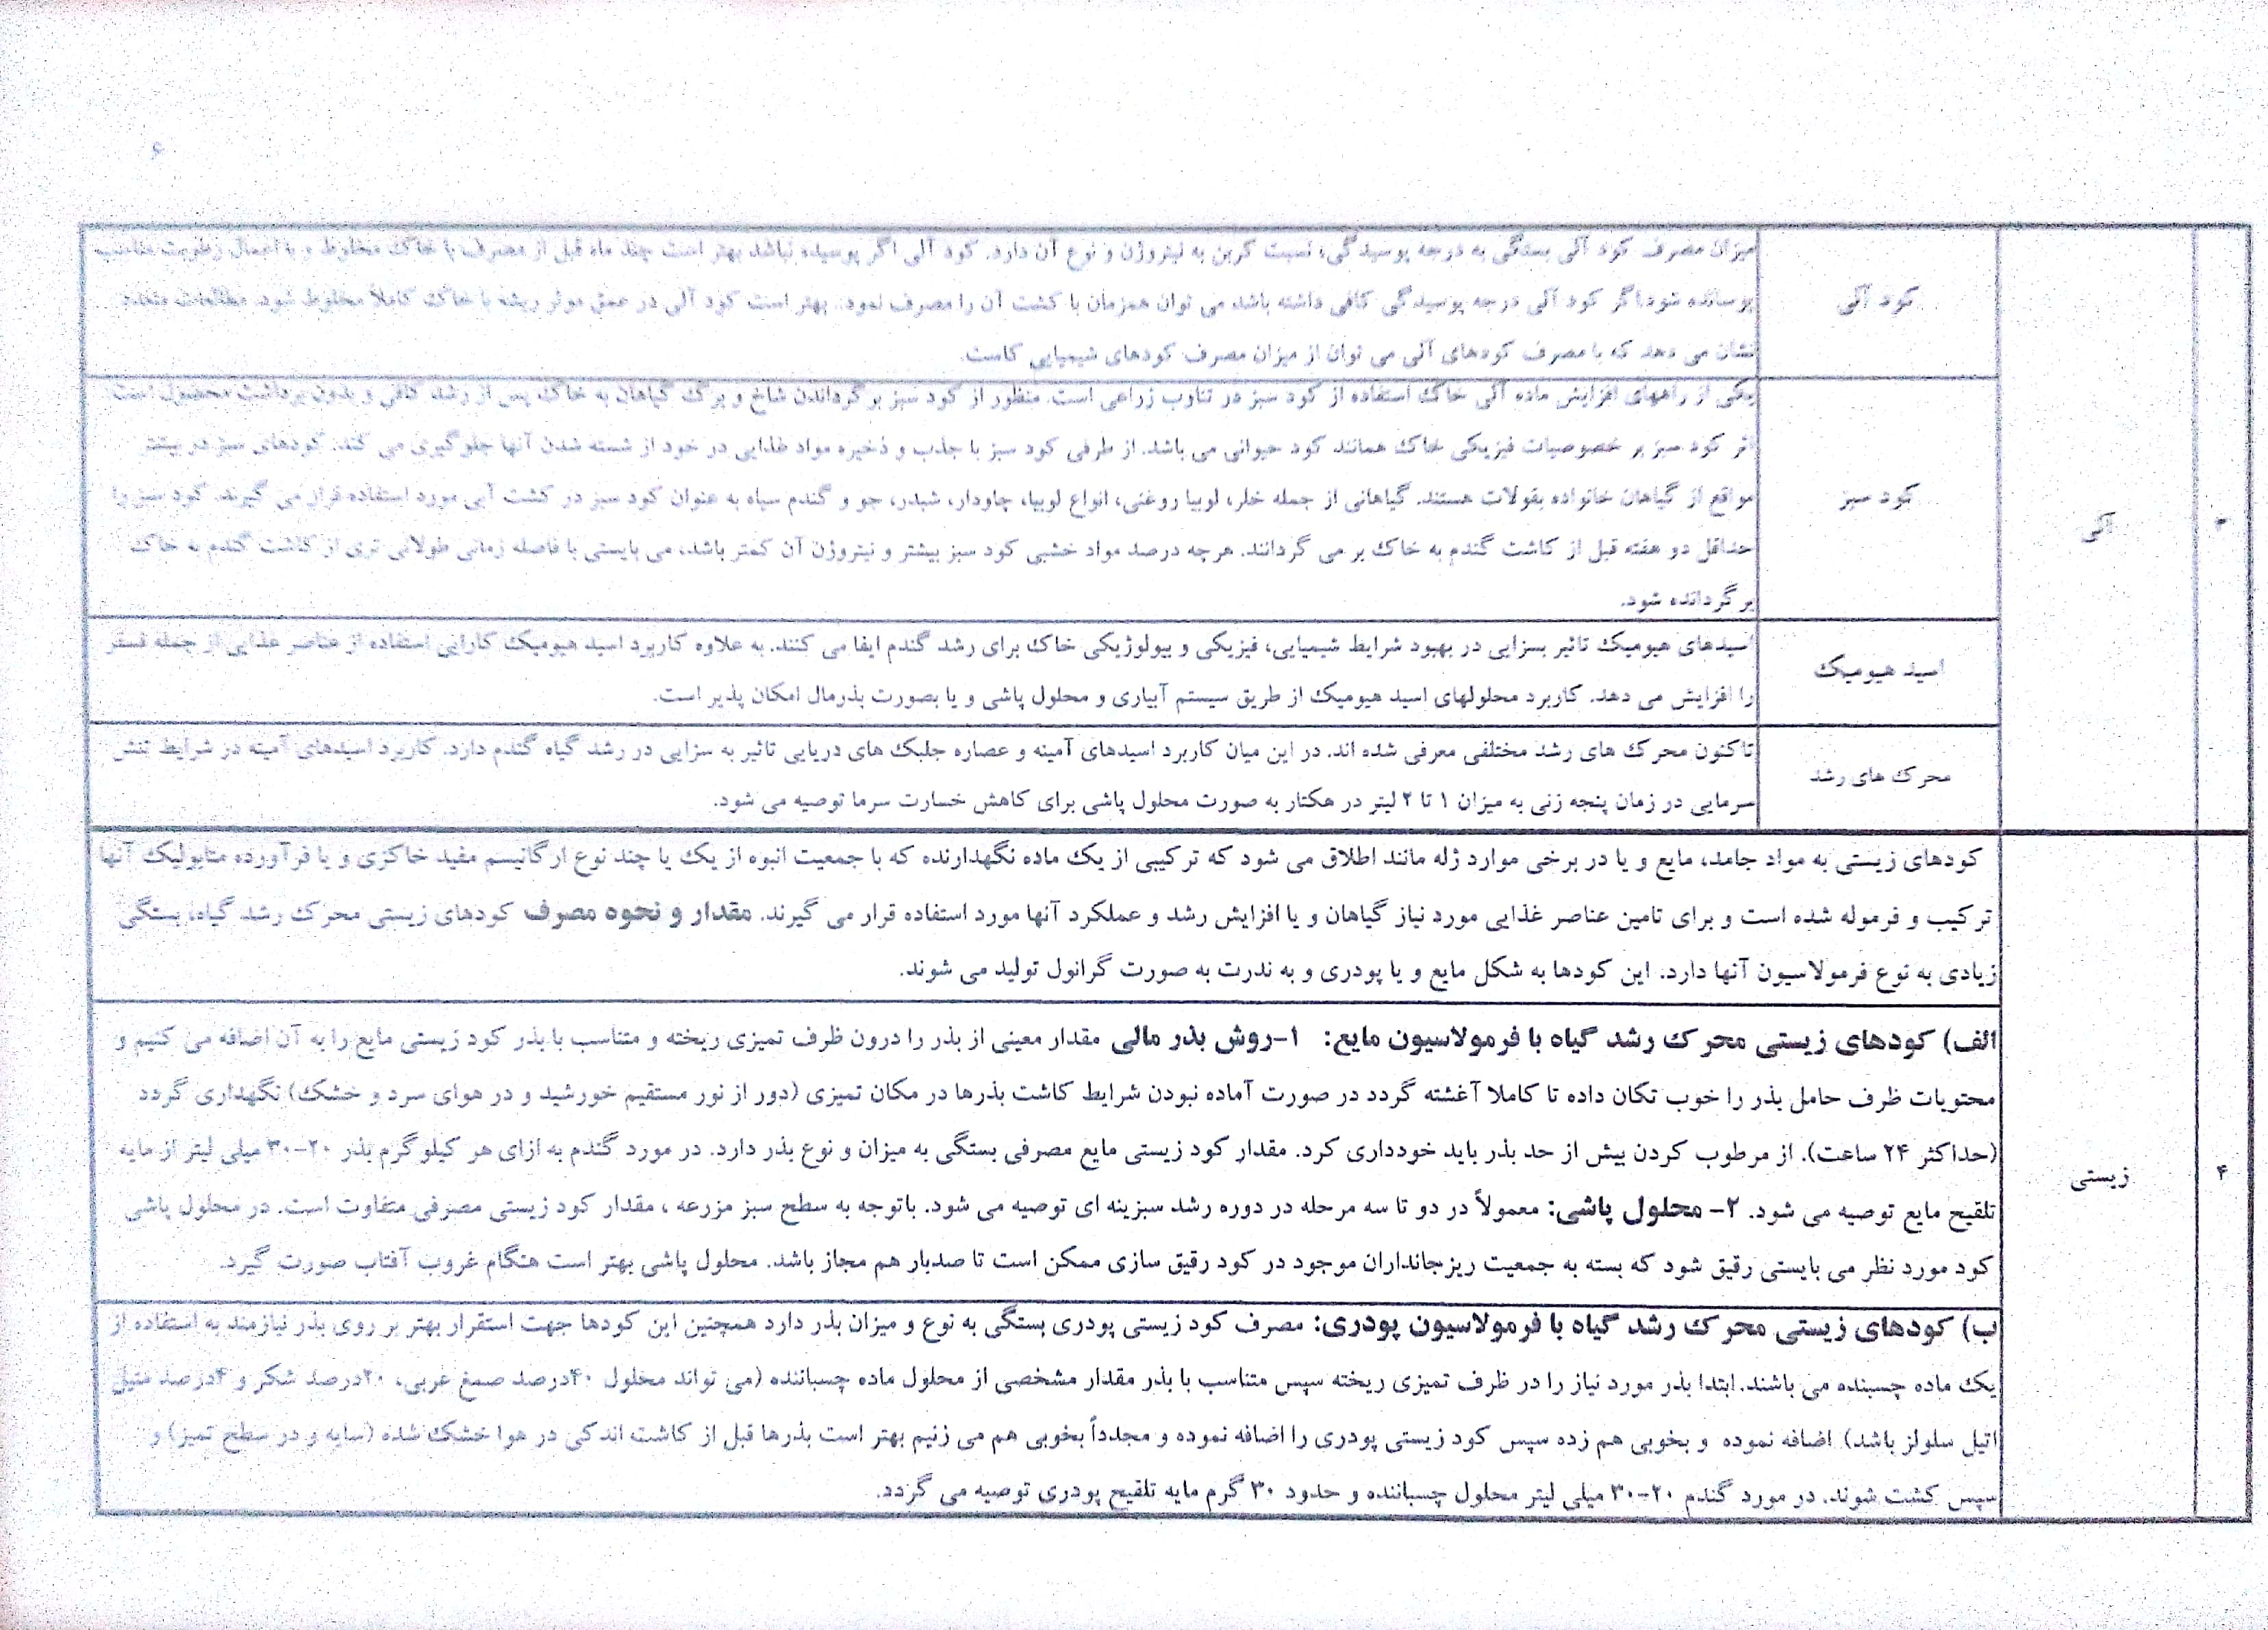 ۶
میزان مصرف کود آلی بستگی به درجه پوسیدگی، نسبت کربن به نیتروژن و نوع آن دارد. کود آلی اگر پوسیده نباشد بهتر است چند ماه قبل از مصرف با خاک مخلوط و با اعمال رطوبت مناسب
کود آلی
پوسانده شود. اگر کود آلی درجه پوسیدگی کافی داشته باشد می توان همزمان با کشت آن را مصرف نمود. بهتر است کود آلی در عمق موثر ریشه با خاک کاملاً مخلوط شود. مطالعات متعدد
نشان می دهد که با مصرف کودهای آلی می توان از میزان مصرف کودهای شیمیایی کاست.
۳
آلی
کود سبز
یکی از راههای افزایش ماده آلی خاک استفاده از کود سبز در تناوب زراعی است. منظور از کود سبز برگرداندن شاخ و برگ گیاهان به خاک پس از رشد کافی و بدون برداشت محصول است.
اثر کود سبز بر خصوصیات فیزیکی خاک همانند کود حیوانی می باشد. از طرفی کود سبز با جذب و ذخیره مواد غذایی در خود از شسته شدن آنها جلوگیری می کند. کودهای سبز در بیشتر
مواقع از گیاهان خانواده بقولات هستند. گیاهانی از جمله خلر، لوبیا روغنی، انواع لوبیا، چاودار، شبدر، جو و گندم سیاه به عنوان کود سبز در کشت آبی مورد استفاده قرار می گیرند. کود سبز را
حداقل دو هفته قبل از کاشت گندم به خاک بر می گردانند. هرچه درصد مواد خشبی کود سبز بیشتر و نیتروژن آن کمتر باشد، می بایستی با فاصله زمانی طولانی تری از کاشت گندم به خاک
برگردانده شود.
اسید هیومیک
اسیدهای هیومیک تاثیر بسزایی در بهبود شرایط شیمیایی، فیزیکی و بیولوژیکی خاک برای رشد گندم ایفا می کنند. به علاوه کاربرد اسید هیومیک کارایی استفاده از عناصر غذایی از جمله فسفر
را افزایش می دهد. کاربرد محلولهای اسید هیومیک از طریق سیستم آبیاری و محلول پاشی و یا بصورت بذرمال امکان پذیر است.
محرک های رشد
تاکنون محرک های رشد مختلفی معرفی شده اند. در این میان کاربرد اسیدهای آمینه و عصاره جلبک های دریایی تاثیر به سزایی در رشد گیاه گندم دارد. کاربرد اسیدهای آمینه در شرایط تنش
سرمایی در زمان پنجه زنی به میزان ۱ تا ۲ لیتر در هکتار به صورت محلول پاشی برای کاهش خسارت سرما توصیه می شود.
۴
زیستی
کودهای زیستی به مواد جامد، مایع و یا در برخی موارد ژله مانند اطلاق می شود که ترکیبی از یک ماده نگهدارنده که با جمعیت انبوه از یک یا چند نوع ارگانیسم مفید خاکزی و یا فرآورده متابولیک آنها
ترکیب و فرموله شده است و برای تامین عناصر غذایی مورد نیاز گیاهان و یا افزایش رشد و عملکرد آنها مورد استفاده قرار می گیرند. مقدار و نحوه مصرف کودهای زیستی محرک رشد گیاه، بستگی
زیادی به نوع فرمولاسیون آنها دارد. این کودها به شکل مایع و یا پودری و به ندرت به صورت گرانول تولید می شوند.
الف) کودهای زیستی محرک رشد گیاه با فرمولاسیون مایع: ۱-روش بذر مالی مقدار معینی از بذر را درون ظرف تمیزی ریخته و متناسب با بذر کود زیستی مایع را به آن اضافه می کنیم و
محتویات ظرف حامل بذر را خوب تکان داده تا کاملا آغشته گردد در صورت آماده نبودن شرایط کاشت بذرها در مکان تمیزی (دور از نور مستقیم خورشید و در هوای سرد و خشک) نگهداری گردد
(حداکثر ۲۴ ساعت). از مرطوب کردن بیش از حد بذر باید خودداری کرد. مقدار کود زیستی مایع مصرفی بستگی به میزان و نوع بذر دارد. در مورد گندم به ازای هر کیلوگرم بذر ۲۰-۳۰ میلی لیتر از مایه
تلقیح مایع توصیه می شود. ۲- محلول پاشی: معمولاً در دو تا سه مرحله در دوره رشد سبزینه ای توصیه می شود. باتوجه به سطح سبز مزرعه ، مقدار کود زیستی مصرفی متفاوت است. در محلول پاشی
کود مورد نظر می بایستی رقیق شود که بسته به جمعیت ریزجانداران موجود در کود رقیق سازی ممکن است تا صدبار هم مجاز باشد. محلول پاشی بهتر است هنگام غروب آفتاب صورت گیرد.
ب) کودهای زیستی محرک رشد گیاه با فرمولاسیون پودری: مصرف کود زیستی پودری بستگی به نوع و میزان بذر دارد همچنین این کودها جهت استقرار بهتر بر روی بذر نیازمند به استفاده از
یک ماده چسبنده می باشند. ابتدا بذر مورد نیاز را در ظرف تمیزی ریخته سپس متناسب با بذر مقدار مشخصی از محلول ماده چسباننده (می تواند محلول ۴۰درصد صمغ عربی، ۲۰درصد شکر و ۴درصد متیل
اتیل سلولز باشد) اضافه نموده و بخوبی هم زده سپس کود زیستی پودری را اضافه نموده و مجدداً بخوبی هم می زنیم بهتر است بذرها قبل از کاشت اندکی در هوا خشک شده (سایه و در سطح تمیز) و
سپس کشت شوند. در مورد گندم ۲۰-۳۰ میلی لیتر محلول چسباننده و حدود ۳۰ گرم مایه تلقیح پودری توصیه می گردد.